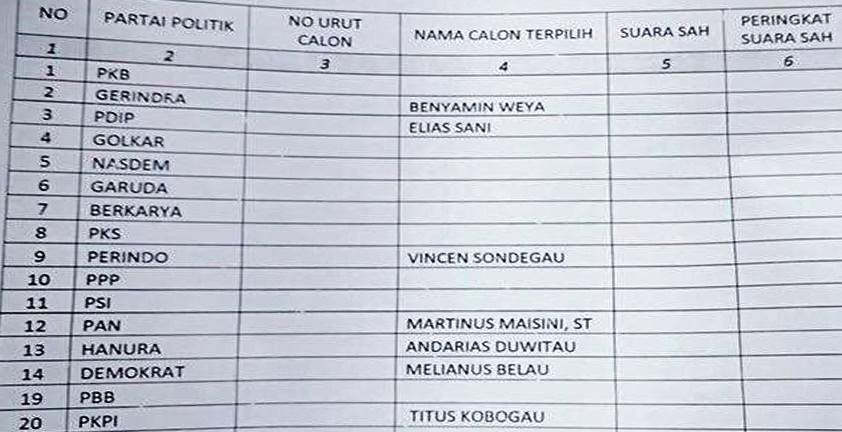 NO PARTAI POLITIK NO URUT CALON NAMA CALON TERPILIH SUARA SAH PERINGKAT SUARA SAH
1 2 3 4 5 6
1 PKB
2 GERINDRA BENYAMIN WEYA
3 PDIP ELIAS SANI
4 GOLKAR
5 NASDEM
6 GARUDA
7 BERKARYA
8 PKS
9 PERINDO VINCEN SONDEGAU
10 PPP
11 PSI
12 PAN MARTINUS MAISINI, ST
13 HANURA ANDARIAS DUWITAU
14 DEMOKRAT MELIANUS BELAU
19 PBB
20 PKPI TITUS KOBOGAU